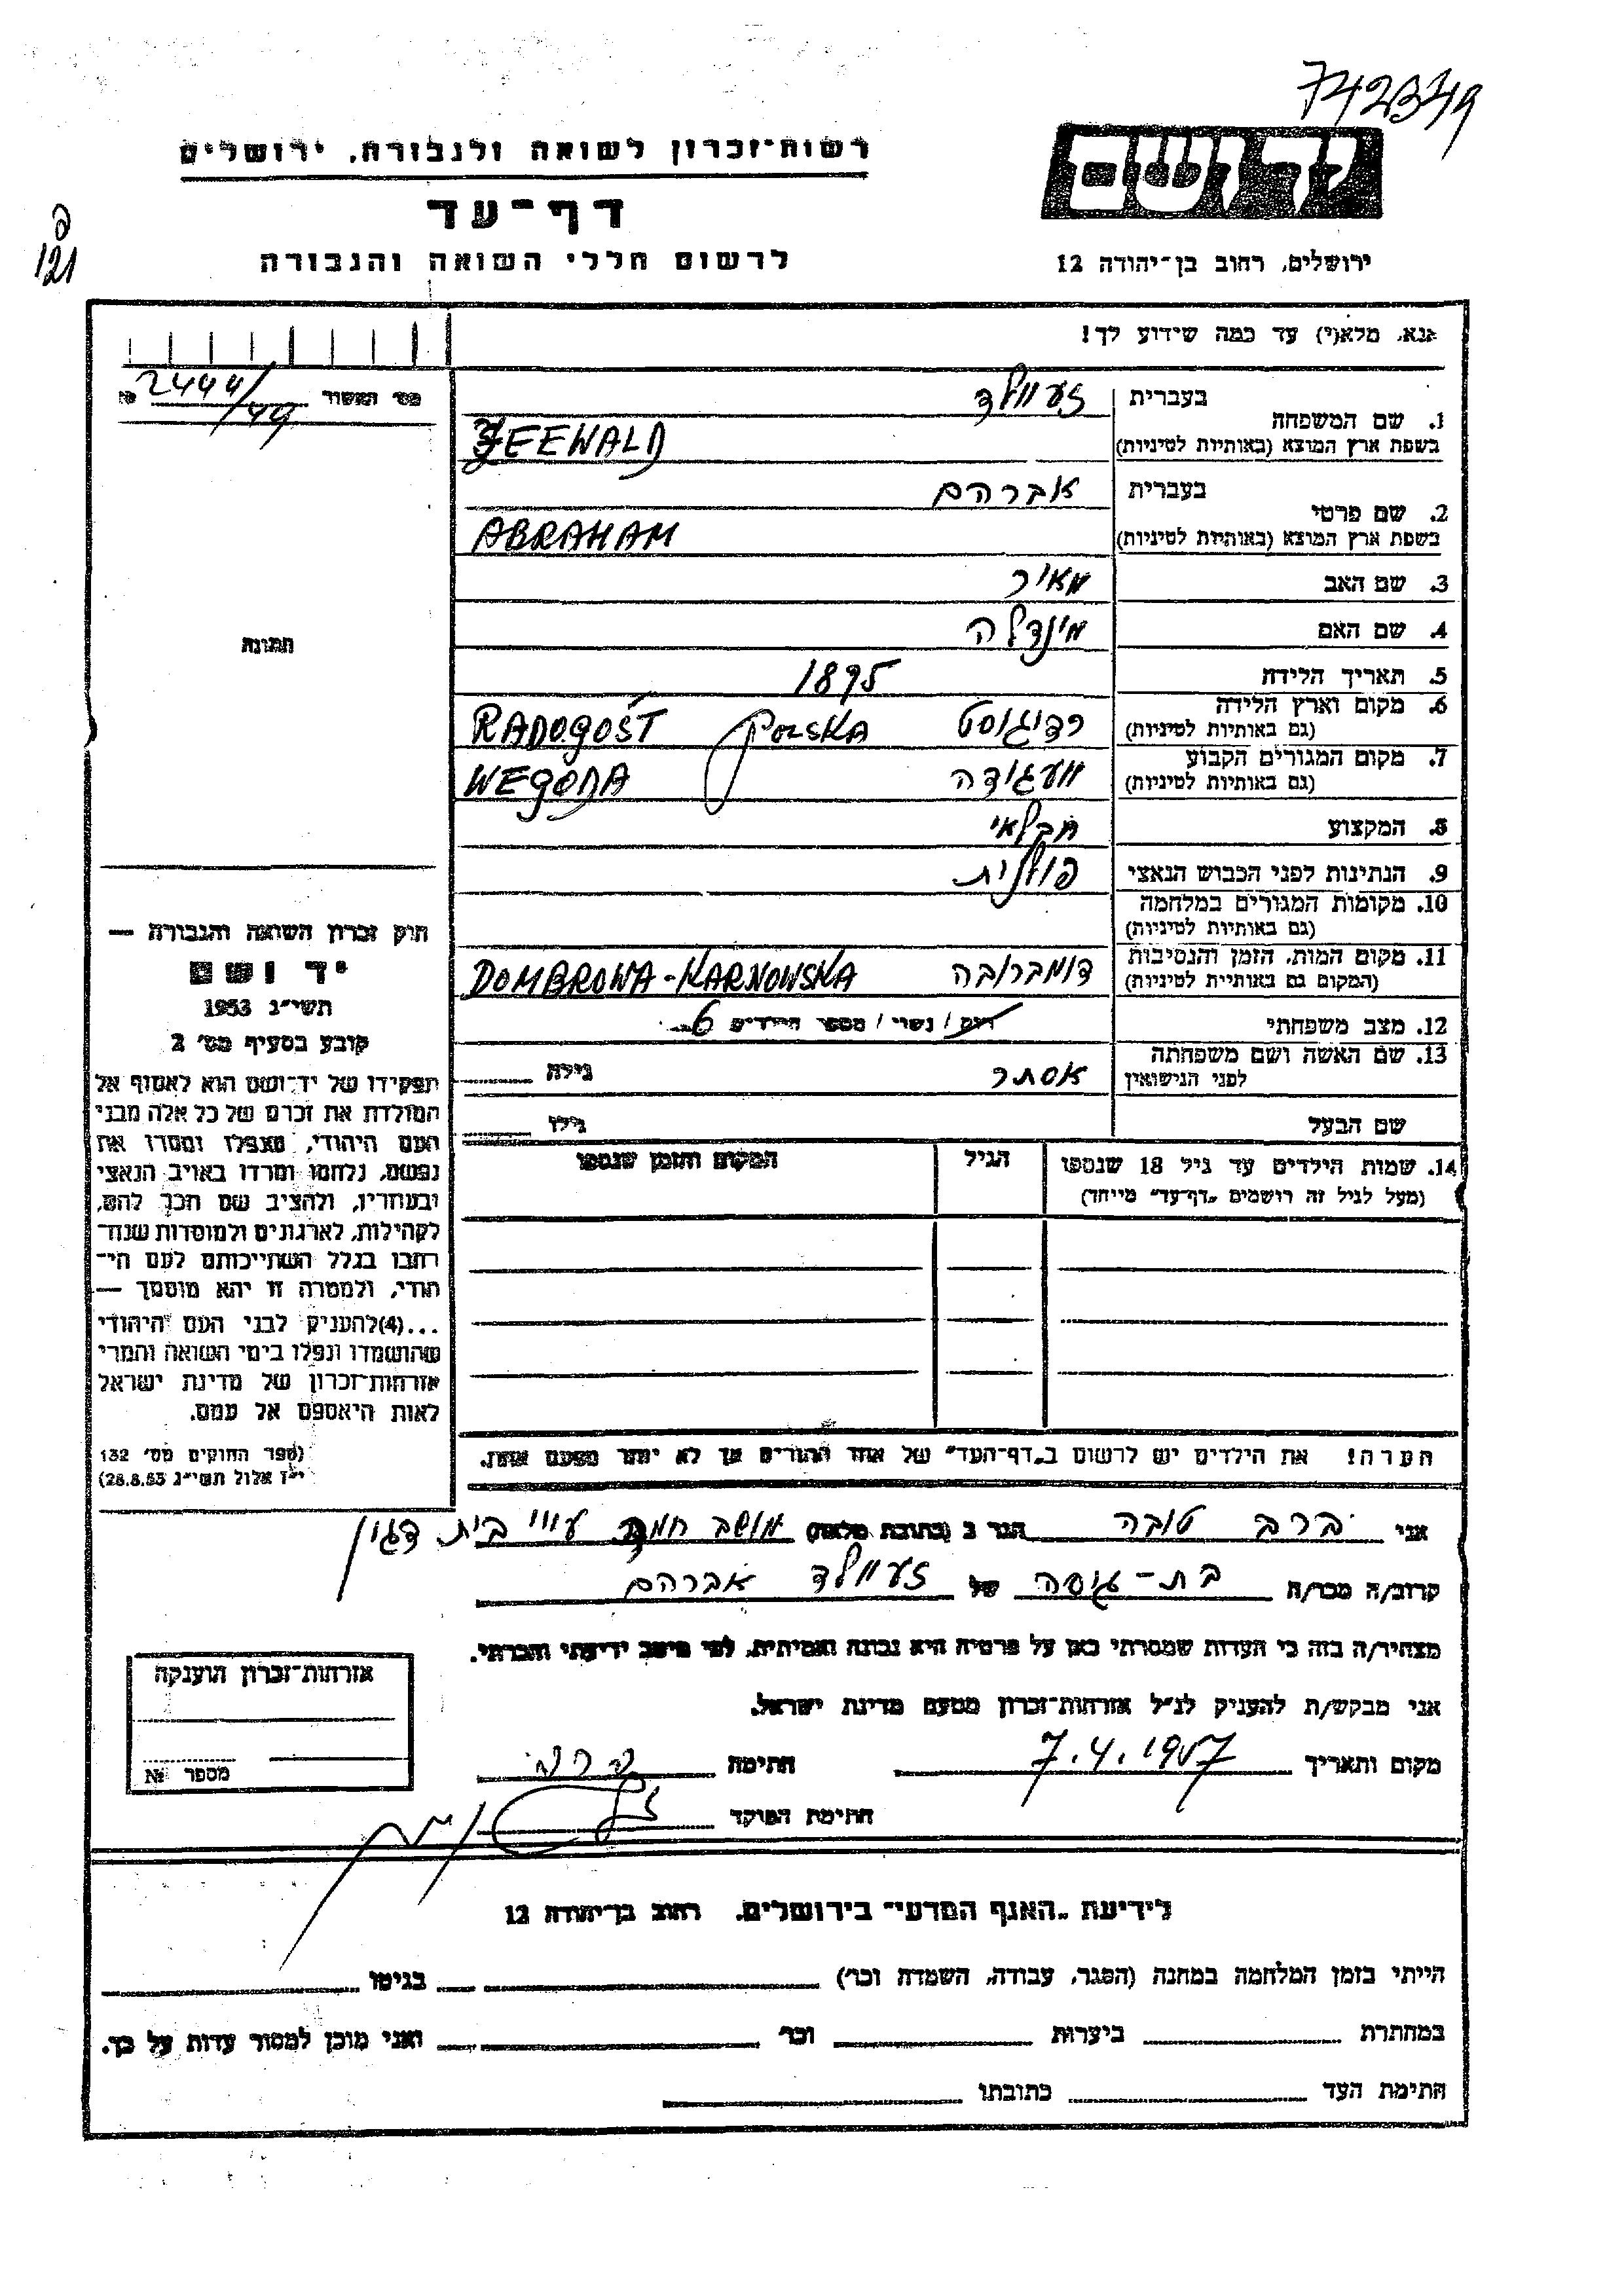 742349
רשות־זכרון לשואה ולגבורה, ירושלים
יד ושם
דף־עד
לרשום חללי השואה והגבורה
ירושלים, רחוב בן־יהודה 12
121
אנא, מלא(י) עד כמה שידוע לך!
מס' האשור № 2444/49
1. שם המשפחה
בעברית זעוולד
בשפת ארץ המוצא (באותיות לטיניות) ZEEWALD
2. שם פרטי
בעברית אברהם
בשפת ארץ המוצא (באותיות לטיניות) ABRAHAM
3. שם האב מאיר
4. שם האם מינדלה
5. תאריך הלידה 1895
6. מקום וארץ הלידה רדיגוסט POLSKA RADOGOŚT
(גם באותיות לטיניות)
7. מקום המגורים הקבוע וועגודה WEGODA
(גם באותיות לטיניות)
8. המקצוע חקלאי
9. הנתינות לפני הכבוש הנאצי פולנית
10. מקומות המגורים במלחמה
(גם באותיות לטיניות)
11. מקום המות, הזמן והנסיבות דומברובה DOMBROWA-KARNOWSKA
(המקום גם באותיות לטיניות)
12. מצב משפחתי רווק / נשוי / מספר הילדים 6
13. שם האשה ושם משפחתה
לפני הנישואין אסתר גילה
שם הבעל גילו
14. שמות הילדים עד גיל 18 שנספו
(מעל לגיל זה רושמים „דף־עד" מיוחד)
הגיל
המקום והזמן שנספו
הערה! את הילדים יש לרשום ב„דף־העד" של אחד ההורים אך לא יותר מפעם אחת.
תמונה
חוק זכרון השואה והגבורה —
יד ושם
תשי"ג 1953
קובע בסעיף מס' 2
תפקידו של יד־ושם הוא לאסוף אל
המולדת את זכרם של כל אלה מבני
העם היהודי, שנפלו ומסרו את
נפשם, נלחמו ומרדו באויב הנאצי
ובעוזריו, ולהציב שם וזכר להם,
לקהילות, לארגונים ולמוסדות שנח־
רבו בגלל השתייכותם לעם הי־
הודי, ולמטרה זו יהא מוסמך —
...(4)להעניק לבני העם היהודי
שהושמדו ונפלו בימי השואה והמרי
אזרחות־זכרון של מדינת ישראל
לאות היאספם אל עמם.
(ספר החוקים מס' 132
י"ז אלול תשי"ג 28.8.53)
אני ברב טובה הגר ב (כתובת מלאה) מושב חמד ע"י בית דגון
קרוב/ה מכר/ה בת-גיסה של זעוולד אברהם
מצהיר/ה בזה כי העדות שמסרתי כאן על פרטיה היא נכונה ואמיתית, לפי מיטב ידיעתי והכרתי.
אני מבקש/ת להעניק לנ"ל אזרחות־זכרון מטעם מדינת ישראל.
מקום ותאריך 7.4.1957 חתימה
חתימת הפוקד
אזרחות־זכרון הוענקה
מספר №
לידיעת „האגף המדעי" בירושלים, רחוב בן־יהודה 12
הייתי בזמן המלחמה במחנה (הסגר, עבודה, השמדה וכו') בגיטו
במחתרת ביערות וכו' ואני מוכן למסור עדות על כך.
חתימת העד כתובתו